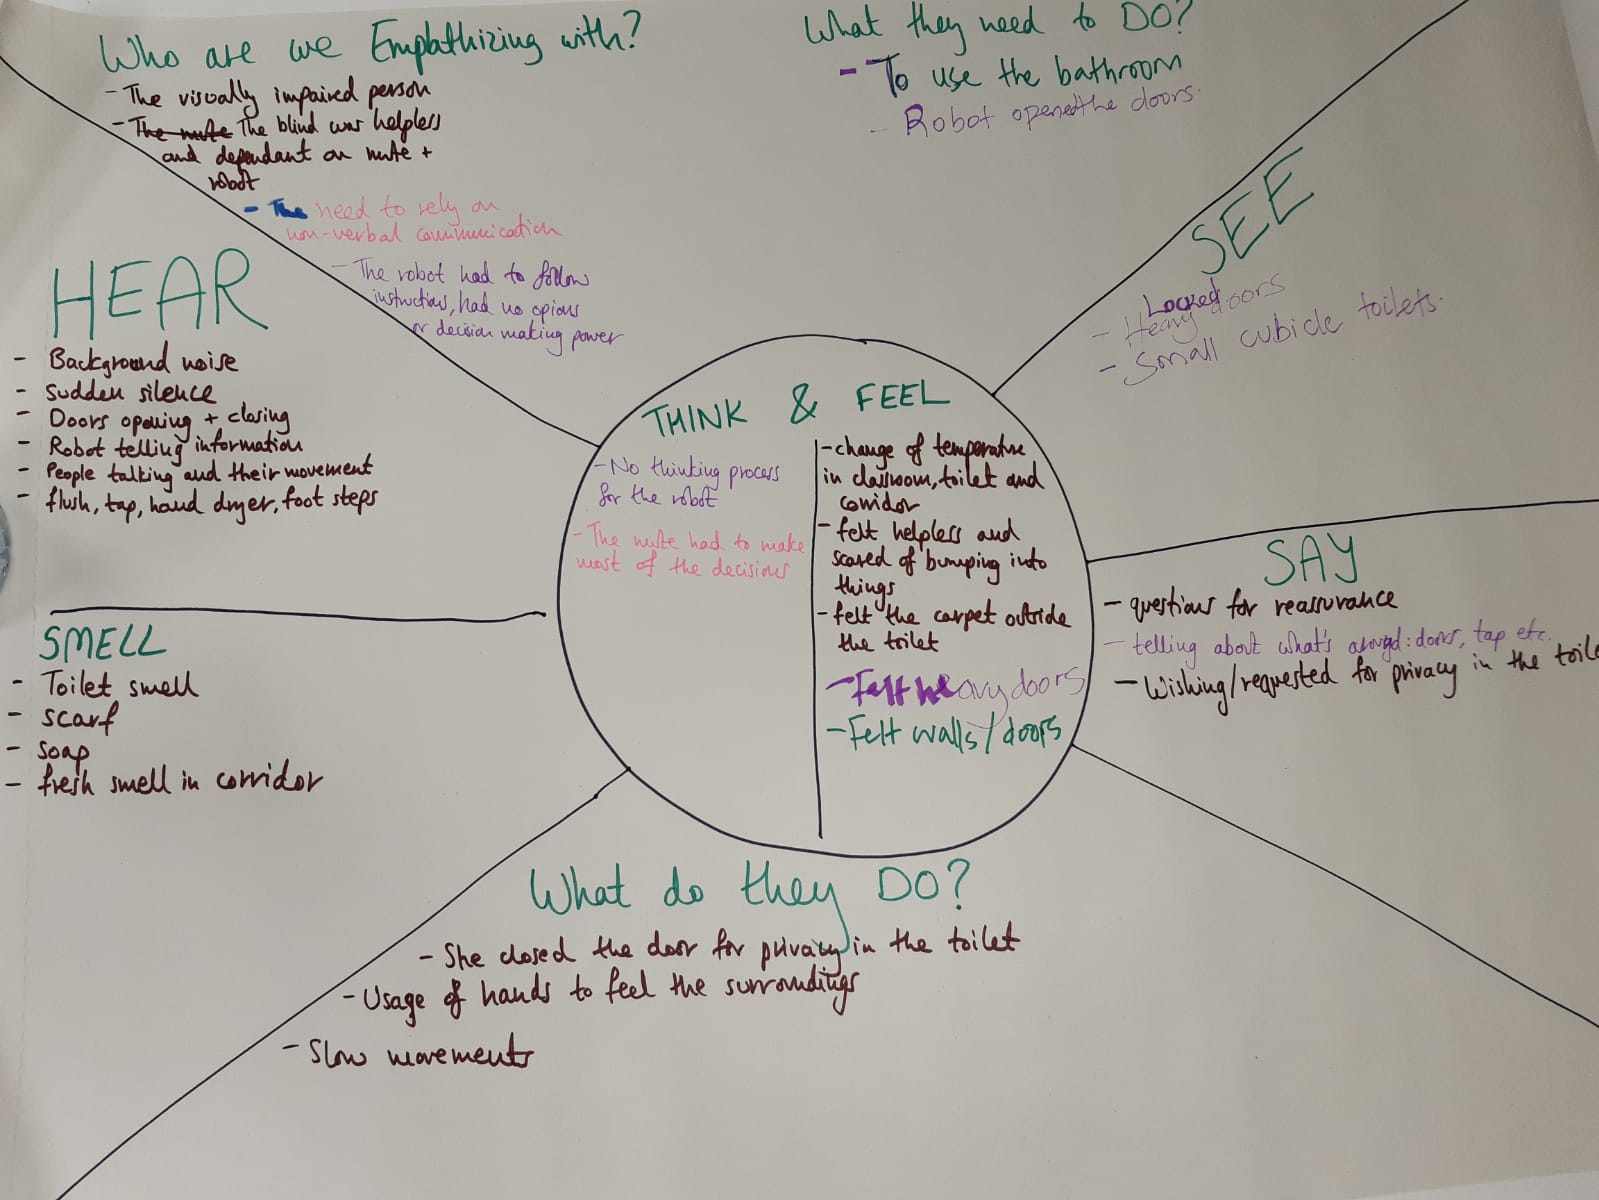 Who are we Empathizing with?
- The visually impaired person
- The mute The blind was helpless
and dependant on mute +
robot
- The need to rely on
non-verbal communication
- The robot had to follow
instructions, had no opions
or decision making power
What they need to DO?
- To use the bathroom
- Robot opened the doors.
SEE
Locked
- Heavy doors
- Small cubicle toilets.
HEAR
- Background noise
- Sudden silence
- Doors opening + closing
- Robot telling information
- People talking and their movement
- flush, tap, hand dryer, foot steps
THINK & FEEL
- No thinking process
for the robot
- The mute had to make
most of the decisions
- change of temperature
in classroom, toilet and
corridor
- felt helpless and
scared of bumping into
things
- felt the carpet outside
the toilet
- Felt heavy doors
- Felt walls/doors
SAY
- questions for reassurance
- telling about what's around: doors, tap etc.
- Wishing/requested for privacy in the toile
SMELL
- Toilet smell
- scarf
- soap
- fresh smell in corridor
What do they DO?
- She closed the door for privacy in the toilet
- Usage of hands to feel the surroundings
- Slow movements